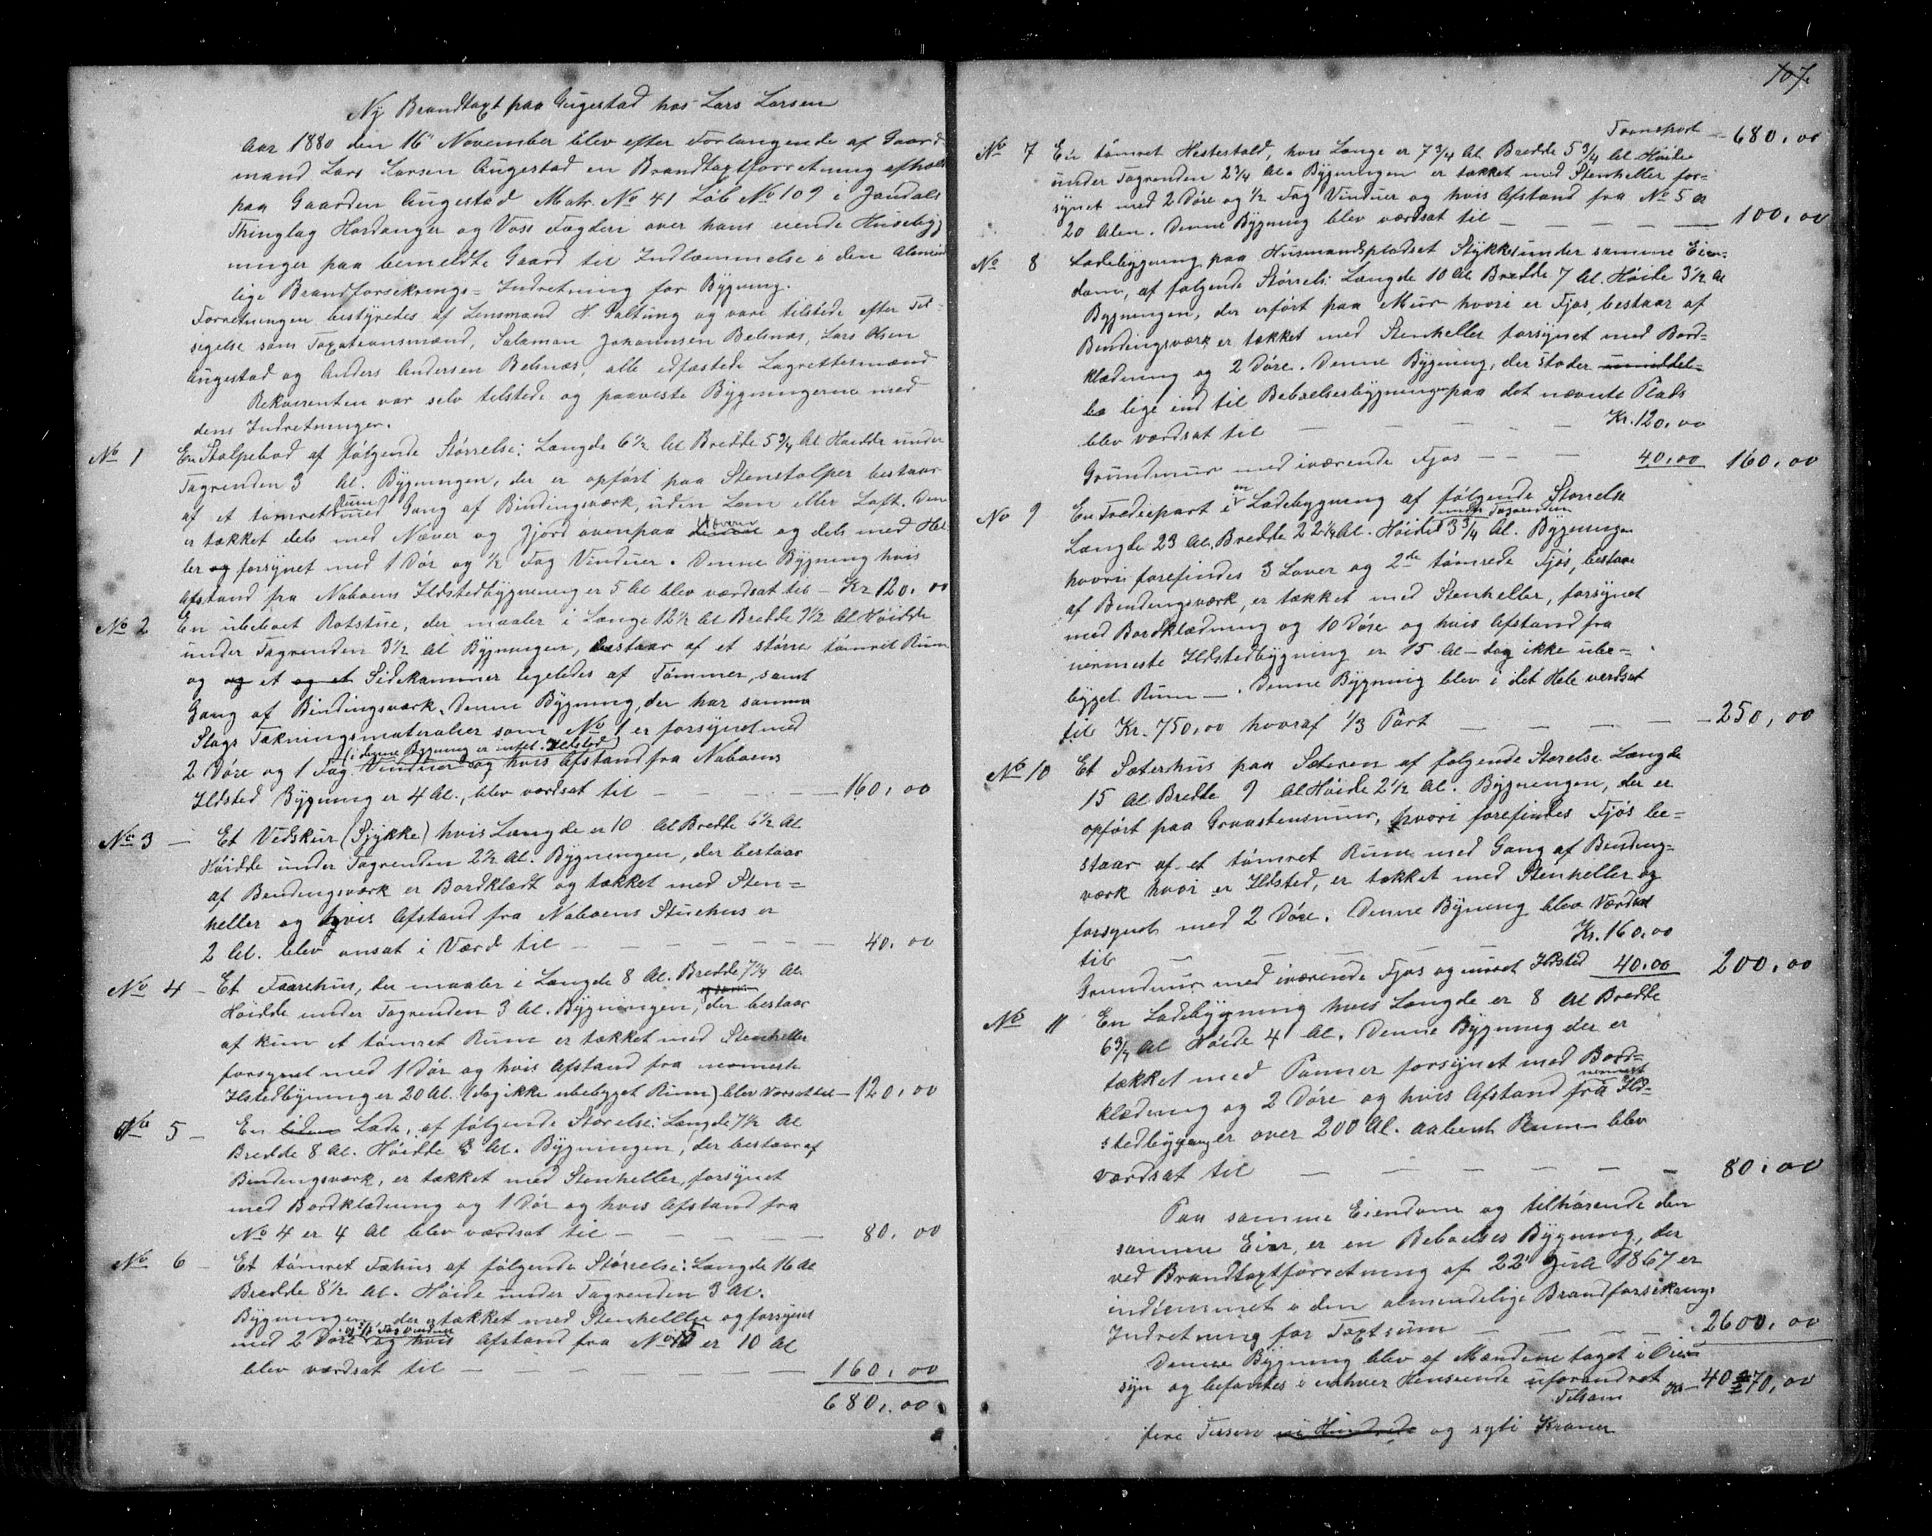 Ny Brandtaxt paa Augestad hos Lars Larsen
Aar 1880 den 16 November blev efter Forlangende af Gaard
mand Lars Larsen Augestad en Brandtaxtforretning afhold
paa Gaarden Augestad Matr. No 41 Løb No 109 i Jondals
Thinglag Hardanger og Voss Fogderi over hans eiende Husebyg
ninger paa bemeldte Gaard til Indlemmelse i den Almin
lige Brandforsikrings- Indretning for Bygning.
Forretningen bestyredes af Lensmand H. Saltung og vare tilstede efter Til-
sigelse som Taxationsmænd, Salamon Johannesen Belsnæs, Lars Olsen
Augestad og Anders Andersen Belsnæs, alle edfæstede Lagrettesmænd
Rekvirenten var selv tilstede og paaviste Bygningerne med
dens Indretninger.
No 1 En Stolpebod af følgende Størrelse: Længde 6 1/2 Al Bredde 5 3/4 Al Høidde under
Tagrenden 3 Al. Bygningen, der er opført paa Stenstolper bestaar
af et tømret Rum med Gang af Bindingsværk, uden Lem eller Loft. Den
er tækket dels med Næver og Jjord ovenpaa og dels med Hel
ler og forsynet med 1 Dør og 1/2 Fag Vinduer. Denne Bygning hvis
Afstand fra Naboens Ildstedbygning er 5 Al blev værdsat til - Kr 120,00
No 2 En ubeboet Rotstue, der maaler i Længe 12 1/2 Al Bredde 9 1/2 Al Høidde
under Tagrenden 3 1/2 Al Bygningen, bestaar af et større tømret Rum
og og et og et Sidekammer ligeledes af Tømmer, samt
Gang af Bindingsværk. Denne Bygning, der har samme
Slags Tækningsmaterialier som No 1 er forsynet med
(i denne Bygning er intet Ildsted)
2 Døre og 1 Fag Vinduer og hvis Afstand fra Naboens
Ildsted Bygning er 4 Al., blev værdsat til - - - - 160,00
No 3 - Et Vedskur (Skykke) hvis Længde er 10 Al Bredde 6 1/2 Al
Høidde under Tagrenden 2 1/2 Al. Bygningen, der bestaar
af Bindingsværk er Bordklædt og tækket med Sten-
heller og hvis Afstand fra Naboens Stuehus er
2 Al. blev ansat i Værd til - - - - - - 40,00
No 4 - Et Faarehus, der maaler i Længde 8 Al. Bredde 7 1/4 Al.
Høidde under Tagrenden 3 Al. Bygningen, der bestaar
af kun et tømret Rum er tækket med Stenheller
forsynet med 1 Dør og hvis Afstand fra nærmeste
Ildstedbygning er 20 Al. (dog ikke ubebygget Rum) blev Værsat til - 120,00
No 5 - En liden Lade, af følgende Størelse: Længde 7 1/2 Al
Bredde 8 Al. Høidde 3 Al. Bygningen, der bestaar af
Bindingsværk, er tækket med Stenheller, forsynet
med Bordklædning og 1 Dør og hvis Afstand fra
No 4 er 4 Al blev værdsat til - - - - - 80,00
No 6 - Et tømret Fæhus af følgende Størrelse: Længde 16 Al
Bredde 8 1/2 Al. Høide under Tagrenden 3 Al.
Bygningen, der er tækket med Stenheller og forsynet
og 1/2 Fag Vinduer
med 2 Døre og hvis Afstand fra No er 10 Al
blev værdsat til - - - - - 160,00
680,00
107.
Transport - 680,00
No 7 En tømret Hestestald, hvis Længe er 7 3/4 Al Bredde 5 3/4 Al Høide
under Tagrenden 2 3/4 Al. Bygningen er tækket med Stenheller for-
synet med 2 Døre og 1/2 Fag Vinduer og hvis Afstand fra No 5 er
20 Alen. Denne Bygning blev værdsat til - - - - - 100,00
No 8 Ladebygning paa Husmandspladset Stykke under samme Eien-
dom, af følgende Størrels: Længde 10 Al Bredde 7 Al. Høide 3 1/2 Al
Bygningen, der erført paa Mur hvori er Fjøs, bestaar af
Bindingsværk er tækket med Stenheller forsynet med Bord-
klædning og 2 Døre. Denne Bygning, der støder umiddel-
ba lige ind til Beboelsesbygningen paa det nævnte Plads
blev værdsat til - - - - - Kr. 120,00
Grundmur med iværende Fjøs - - - 40,00 160,00
No 9 En Trediepart i en Ladebygning af følgende Størrelse
under Tagrenden
Længde 23 Al. Bredde 22 1/4 Al. Høide 3 3/4 Al. Bygningen
hvori forefindes 3 Lover og 2de tømrede Fjøs, bestaar
af Bindingsværk, er tækket med Stenheller, forsynet
med Bordklædning og 10 Døre og hvis Afstand fra
nærmeste Ildstedbygning er 15 Al - dog ikke ube-
bygget Rum -. Denne Bygning blev i det Hele verdsat
til Kr. 750,00 hvoraf 1/3 Part - - - - - 250,00
No 10 Et Sæterhus paa Sæteren af følgende Størelse Længde
15 Al Bredde 9 Al Høide 2 1/2 Al. Bygningen, der er
opført paa Graastensmur, hvori forefindes Fjøs be-
staar af et tømret Rum med Gang af Binding-
værk hvori er Ildsted, er tækket med Stenheller og
forsynet med 2 Døre. Denne Bygning blev Værdsat
til - - - - - Kr. 160,00
Grundmur med iværende Fjøs og muret Ildsted 40,00 200,00
No 11 En Ladebygning hvis Længde er 8 Al Bredde
6 3/4 Al Høide 4 Al. Denne Bygning der er
tækket med Panner forsynet med Bord-
nærmest
klædning og 2 Døre og hvis Afstand fra Ild-
stedbygning er over 200 Al. aabent Rum blev
værdsat til - - - - - - 80,00
Paa samme Eiendom og tilhørende den
samme Eier, er en Beboelses Bygning, der
ved Brandtaxtforretning af 22 Juli 1867 er
indlemmet i den almindelige Brandforsikrings
Indretning for Taxtsum - - - 2600,00
Denne Bygning blev af Mændene taget i Øien
syn og befantes i enhver Henseende uforandret
Tilsam Kr - 4070,00
fire Tusene ni Hundrede og sytti Kroner